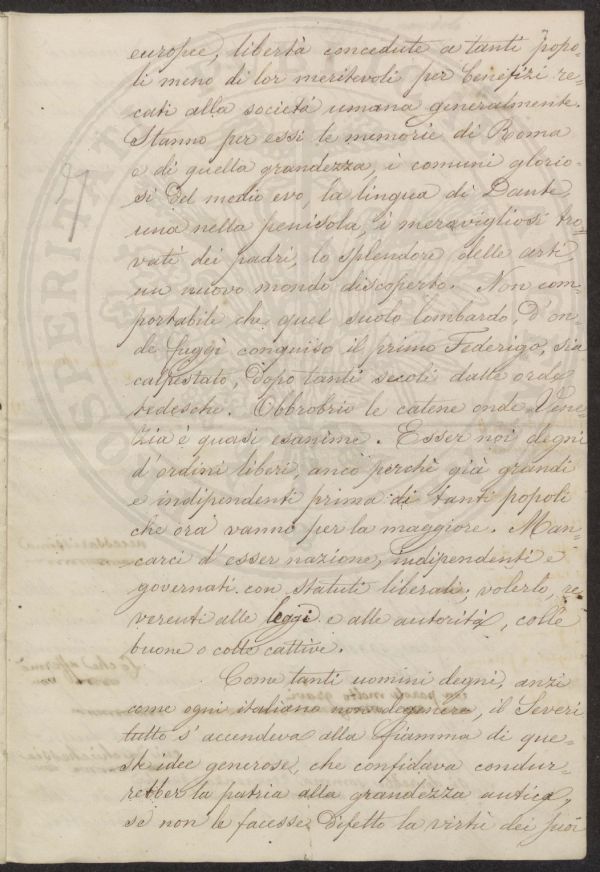 europee, libertà concedute a tanti popo-
li meno di lor meritevoli per benefizi re-
cati alla società umana generalmente.
Stanno per essi le memorie di Roma
e di quella grandezza, i comuni glorio-
si del medio evo, la lingua di Dante,
una nella penisola, i meravigliosi tro-
vati dei padri, lo splendore delle arti,
un nuovo mondo discoperto. Non com-
portabile che quel suolo lombardo, d'on-
de fuggì conquiso il primo Federigo, sia
calpestato, dopo tanti secoli dalle orde
tedesche. Obbrobrio le catene onde Vene-
zia è quasi esanime. Esser noi degni
d'ordini liberi, anco perchè già grandi
e indipendenti prima di tanti popoli
che ora vanno per la maggiore. Man-
carci d'esser nazione, indipendenti e
governati con statuti liberali; volerlo, re-
verenti alle leggi e alle autorità, colle
buone o colle cattive.
Come tanti uomini degni, anzi
come ogni italiano non degenere, il Severi
tutto s'accendeva alla fiamma di que-
ste idee generose, che confidava condur-
rebber la patria alla grandezza antica,
se non le facesse difetto la virtù dei suoi